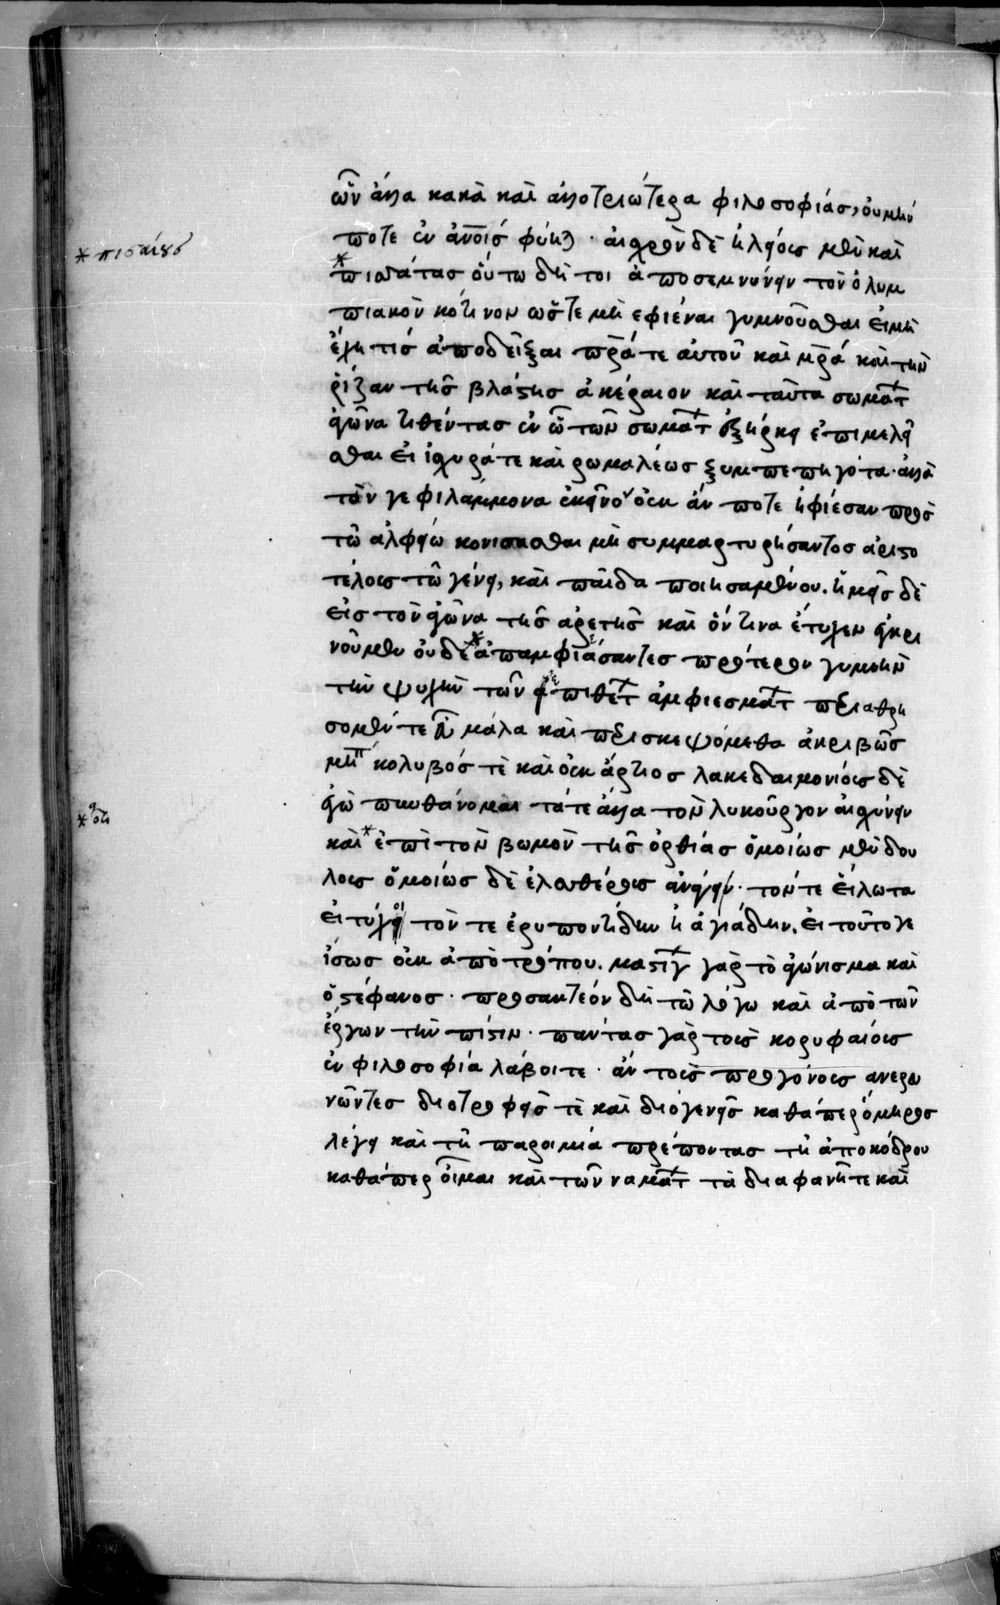 ὧν ἄλλα κακὰ καὶ ἀλλοτριώτερα φιλοσοφίας, οὐ μὴν
ποτε ἐν αὐτοῖς φύει· αἰσχρὸν δὲ ἠλείοις μὲν καὶ
* πισαίους
πισάτας οὕτω δή τοι ἀποσεμνύνειν τὸν ὀλυμ
πιακὸν κότινον ὥστε μὴ ἐφιέναι γυμνοῦσθαι εἰ μὴ
ἔχει τις ἀποδεῖξαι πατέρα τε αὐτοῦ καὶ μητέρα καὶ τὴν
ῥίζαν τῆς βλάστης ἀκέραιον καὶ ταῦτα σωμάτων
ἀγῶνα τιθέντας ἐν ὧ τῶν σωμάτων ἐξήρκει ἐπιμελεῖ
σθαι εἰ ἰσχυρά τε καὶ ῥωμαλέως ξυμπεπηγότα· ἀλλὰ
τόν γε φιλάμμονα ἐκεῖνον οὐκ ἄν ποτε ἠφίεσαν πρὸς
τῶ ἀλφειῶ κονίσασθαι μὴ συμμαρτυρήσαντος ἀριστο
τέλους τῶ γένει, καὶ παῖδα ποιησαμένου. ἡμεῖς δὲ
εἰς τὸν ἀγῶνα τῆς ἀρετῆς καὶ ὅντινα ἔτυχεν ἐγκρι
νοῦμεν οὐδὲ ἀπαμφιάσαντες πρότερον γυμνὴν
τὴν ψυχὴν τῶν ἐπιθέτων ἀμφιεσμάτων περιαθρή
σομέν τε μάλα καὶ περισκεψόμεθα ἀκριβῶς
μήπη κολυβός τε καὶ οὐκ ἄρτιος λακεδαιμονίοις δὲ
ἐγὼ πυνθάνομαι τά τε ἄλλα τὸν λυκοῦργον αἰσχύνειν
* ὅτι
καὶ ἐπὶ τὸν βωμὸν τῆς ὀρθίας ὁμοίως μὲν δού
λοις ὁμοίως δὲ ἐλευθέροις ἀνάγειν· τόν τε εἵλωτα
εἰ τύχοι τόν τε εὐρυποντίδην ἢ ἀγιάδην. εἰ τοῦτό γε
ἴσως οὐκ ἀπὸ τρόπου. μαστίγων γὰρ τὸ ἀγώνισμα καὶ
ὁ στέφανος· προσακτέον δὴ τῶ λόγω καὶ ἀπὸ τῶν
ἔργων τὴν πίστιν· πάντας γὰρ τοὺς κορυφαίους
ἐν φιλοσοφία λάβοιτε· ἂν τοῖς προγόνοις ἀνερω
νῶντες διοτρεφεῖς τε καὶ διογενεῖς καθάπερ ὅμηρος
λέγει καὶ τῆ παροιμία πρέποντας τῆ ἀπὸ κόδρου
καθάπερ οἶμαι καὶ τῶν ναμάτων τὰ διαφανῆ τε καὶ